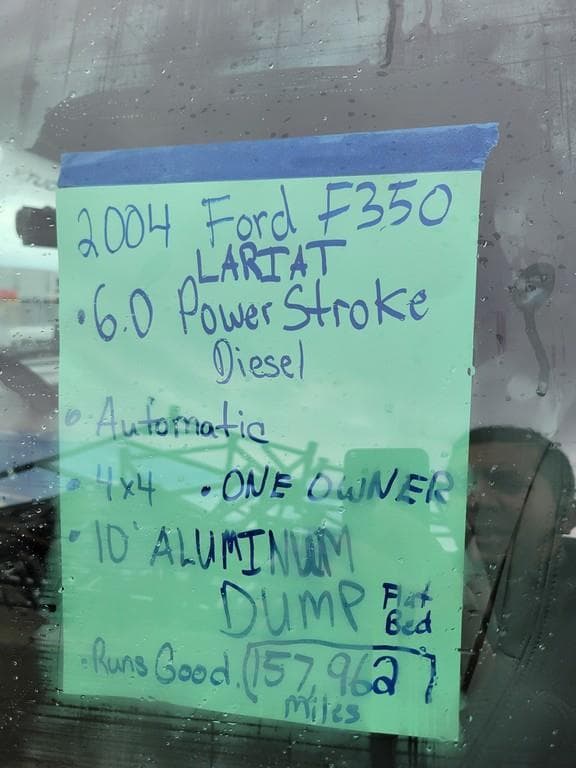 2004 Ford F350
LARIAT
• 6.0 PowerStroke
Diesel
• Automatic
• 4x4 • ONE OWNER
• 10' ALUMINUM
DUMP Flat
Bed
• Runs Good. (157,962)
miles